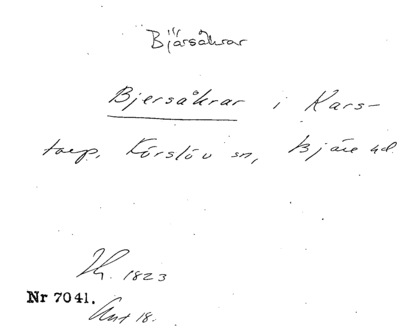 Bjärsåkrar
Bjersåkrar i Kars-
torp, Förslöv sn, Bjäre hd.
1823
Nr 7041.
18.